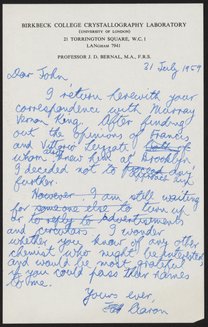 BIRKBECK COLLEGE CRYSTALLOGRAPHY LABORATORY
(UNIVERSITY OF LONDON)
21 TORRINGTON SQUARE, W.C.1
LANGHAM 7941
PROFESSOR J. D. BERNAL, M.A., F.R.S.
31 July 1959
Dear John,
I return herewith your
correspondence with Murray
Vernon King. After finding
out the opinions of Francis
and Vittorio Luzzati both of
whom knew him at Brooklyn
I decided not to
further.
However I am still waiting
for someone else to turn up
or to reply to advertisements
and circulars I wonder
whether you know of any other
chemist who might be interested
and would be most grateful
if you could pass their names
to me.
Yours ever,
Aaron